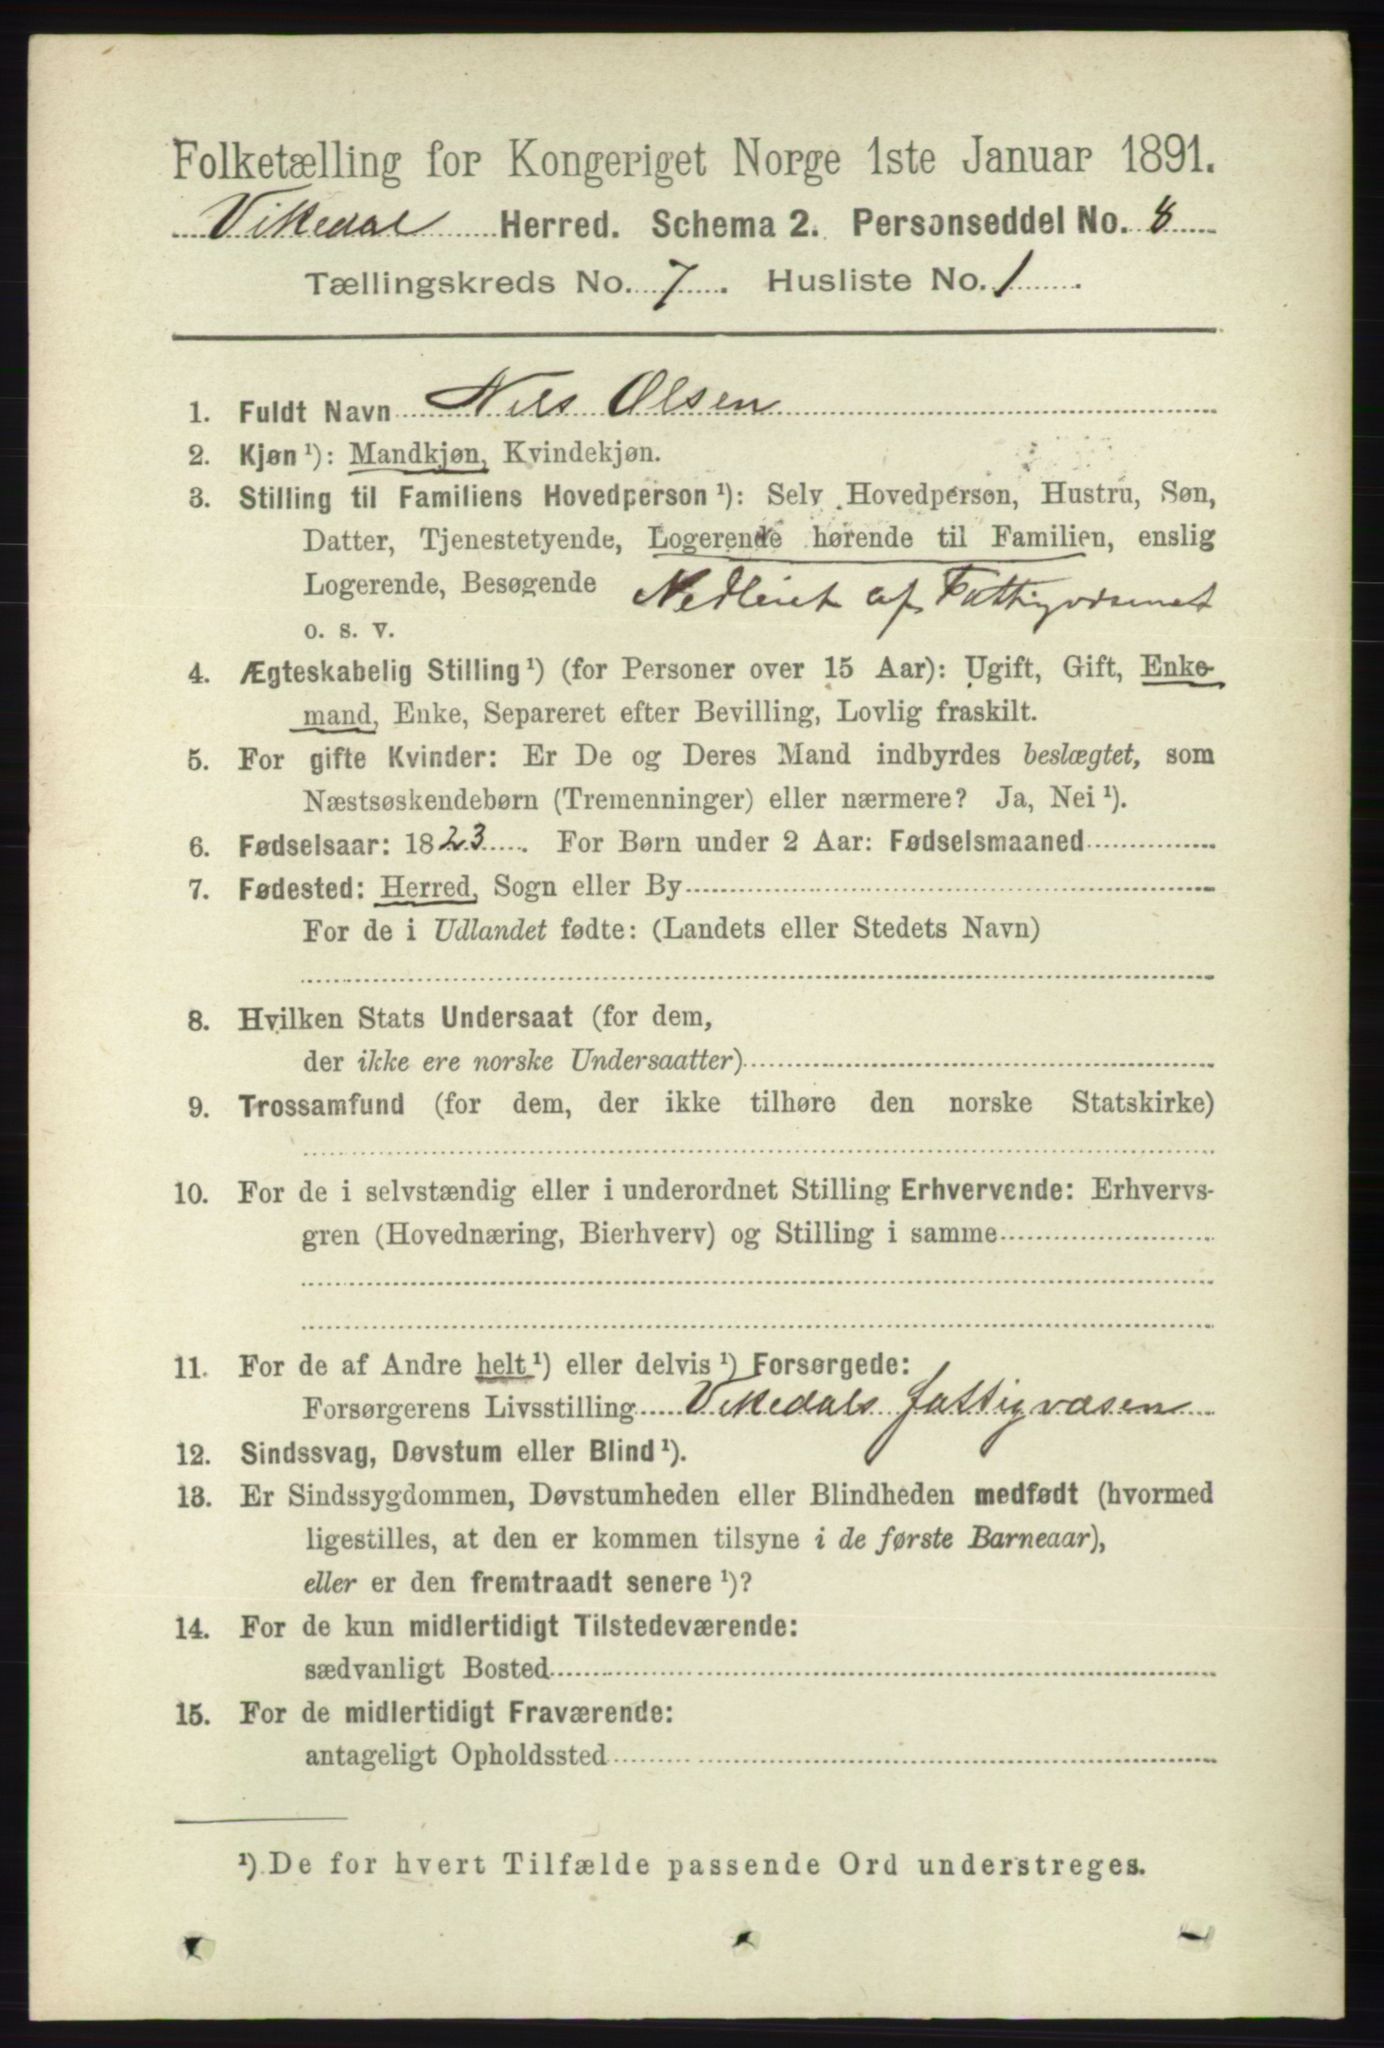 Folketælling for Kongeriget Norge 1ste Januar 1891.
Vikedal Herred. Schema 2. Personseddel No. 8
Tællingskreds No. 7. Husliste No. 1
1. Fuldt Navn Nils Olsen
2. Kjøn ¹): Mandkjøn, Kvindekjøn.
3. Stilling til Familiens Hovedperson ¹): Selv Hovedperson, Hustru, Søn,
Datter, Tjenestetyende, Logerende hørende til Familien, enslig
Logerende, Besøgende Nedleiet af Fattigvæsenet
o. s. v.
4. Ægteskabelig Stilling ¹) (for Personer over 15 Aar): Ugift, Gift, Enke-
mand, Enke, Separeret efter Bevilling, Lovlig fraskilt.
5. For gifte Kvinder: Er De og Deres Mand indbyrdes beslægtet, som
Næstsøskendebørn (Tremenninger) eller nærmere? Ja, Nei ¹).
6. Fødselsaar: 1823. For Børn under 2 Aar: Fødselsmaaned
7. Fødested: Herred, Sogn eller By
For de i Udlandet fødte: (Landets eller Stedets Navn)
8. Hvilken Stats Undersaat (for dem,
der ikke ere norske Undersaatter)
9. Trossamfund (for dem, der ikke tilhøre den norske Statskirke)
10. For de i selvstændig eller i underordnet Stilling Erhvervende: Erhvervs-
gren (Hovednæring, Bierhverv) og Stilling i samme
11. For de af Andre helt ¹) eller delvis ¹) Forsørgede:
Forsørgerens Livsstilling Vikedals fattigvæsen
12. Sindssvag, Døvstum eller Blind ¹).
13. Er Sindssygdommen, Døvstumheden eller Blindheden medfødt (hvormed
ligestilles, at den er kommen tilsyne i de første Barneaar),
eller er den fremtraadt senere ¹)?
14. For de kun midlertidigt Tilstedeværende:
sædvanligt Bosted
15. For de midlertidigt Fraværende:
antageligt Opholdssted
¹) De for hvert Tilfælde passende Ord understreges.